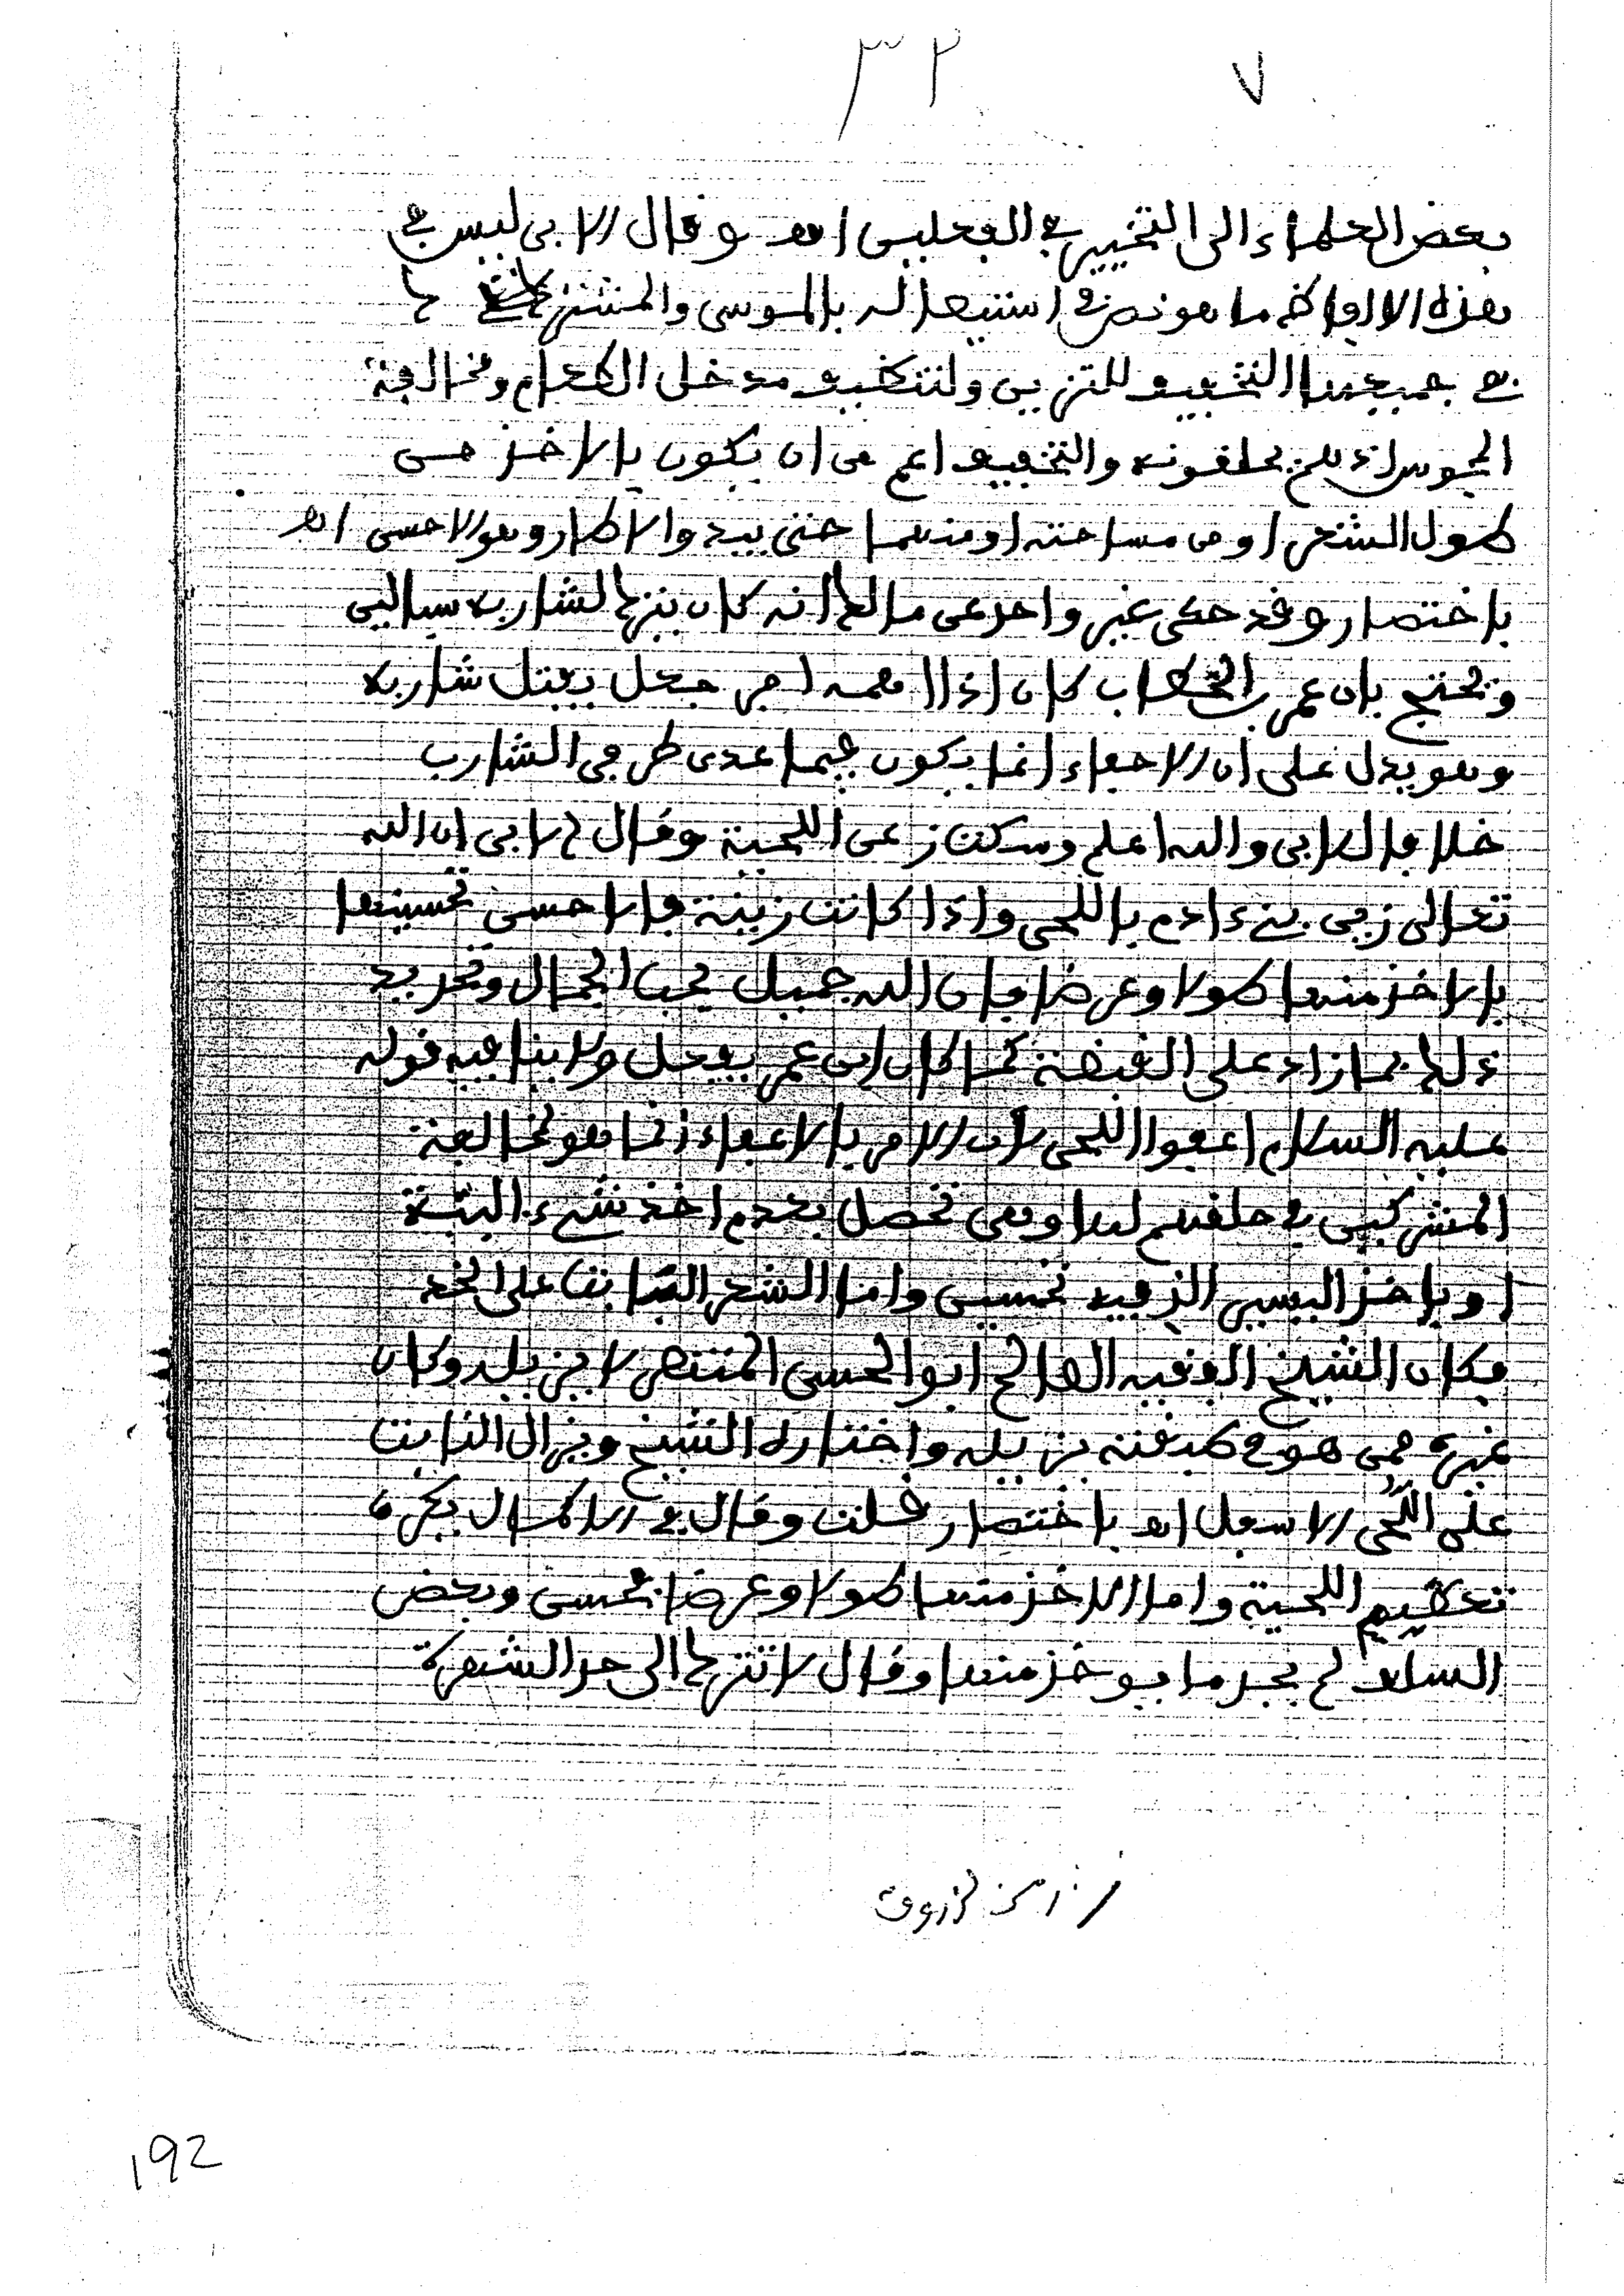 ٣٢ ٧
بعض العلماء الى التخيير في الفعلين اهـ وقال الابي ليس في
هذه الاوامر ما هو نص في استيصاله بالموسى والمشترك
في جميعها التخفيف للتزيين ولتنظيف مدخل الطعام ومخالفة
المجوس لانهم يحلفونه والتخفيف اعم من ان يكون بالاخذ من
طول الشعر او من مساحته او منهما حتى يبدو الاطار وهو الاحسن اهـ
باختصار وقد حكى غير واحد عن مالك انه كان يترك لشاربه سبالين
ويحتج بان عمر بن الخطاب كان اذا اهمه امر جعل يفتل شاربه
وهو يدل على ان الاحفاء انما يكون فيما عدى طرفي الشارب
خلا قال الابي والله اعلم وسكت ز عن اللحية وقال الابي ان الله
تعالى زين بنى ءادم باللحى واذا كانت زينة فالاحسن تحسينها
بالاخذ منها طولا وعرضا فان الله جميل يحب الجمال وتحديد
ذلك بما زاد على القبضة كما كان ابن عمر يفعل ولا ينافيه قوله
عليه السلام اعفوا اللحى لان الامر بالاعفاء انما هو لمخالفة
المشركين في حلقهم لها وهي تحصل بعدم اخذ شيء البتة
او باخذ اليسير الذي فيه تحسين واما الشعر النابت على الخد
فكان الشيخ الفقيه الصالح ابو الحسن المنتصر لا يزيله وكان
غيره ممن هو في طبقته يزيله واختاره الشيخ ويزال النابت
على اللحى الاسفل اهـ باختصار قلت وقال في الاكمال يكره
تعظيم اللحية واما الاخذ منها طولا وعرضا فحسن وبعض
السلف لم يحد ما يوخذ منها وقال لا تترك الى حد الشهرة
192